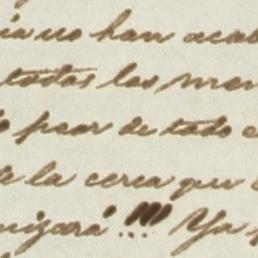 ia no han acab
todas las mer
o peor de todo e
e la cerca que
nizará!!! Ya